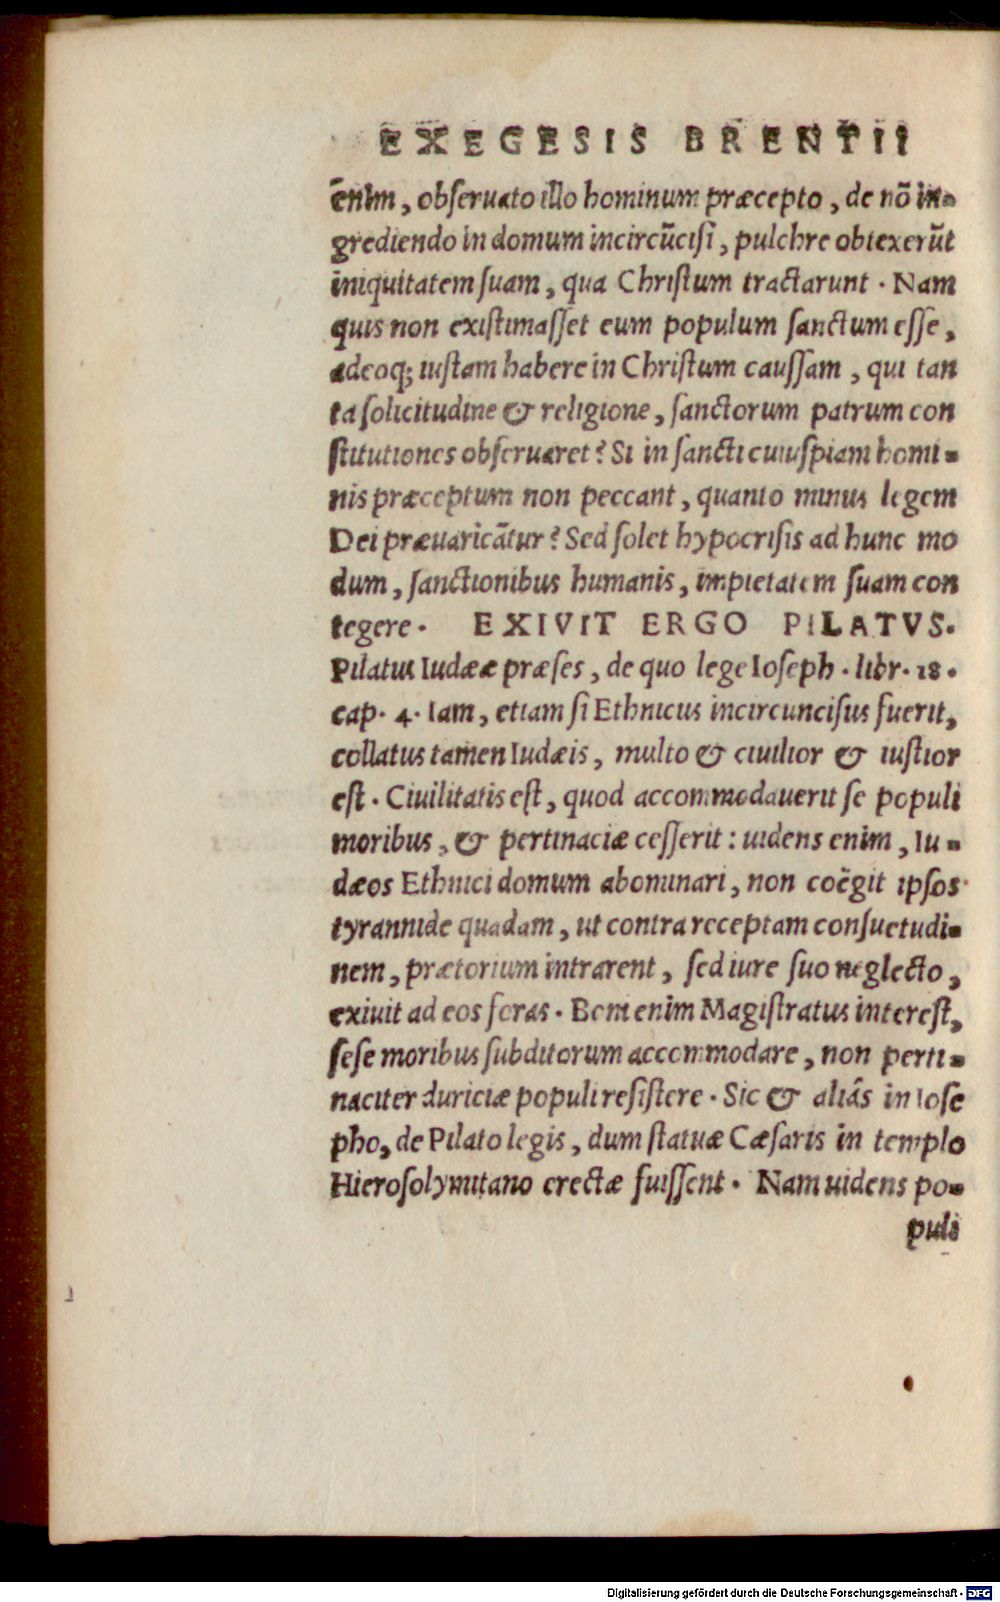 EXEGESIS BRENTII
enim, obſeruato illo hominum præcepto, de nõ in-
grediendo in domum incircũciſi, pulchre obtexerũt
iniquitatem ſuam, qua Chriſtum tractarunt. Nam
quis non exiſtimaſſet eum populum ſanctum eſſe,
adeoq; iuſtam habere in Chriſtum cauſſam, qui tan
ta ſolicitudine & religione, ſanctorum patrum con
ſtitutiones obſeruaret? Si in ſancti cuiuſpiam homi-
nis præceptum non peccant, quanto minus legem
Dei præuaricãtur? Sed ſolet hypocriſis ad hunc mo
dum, ſanctionibus humanis, impietatem ſuam con
tegere. EXIVIT ERGO PILATVS.
Pilatus Iudææ præſes, de quo lege Ioſeph. libr. 18.
cap. 4. Iam, etiam ſi Ethnicus incirunciſus fuerit,
collatus tamen Iudæis, multo & ciuilior & iuſtior
eſt. Ciuilitatis eſt, quod accommodauerit ſe populi
moribus, & pertinaciæ ceſſerit: uidens enim, Iu-
dæos Ethnici domum abominari, non coëgit ipſos
tyrannide quadam, ut contra receptam conſuetudi-
nem, prætorium intrarent, ſed iure ſuo neglecto,
exiuit ad eos foras. Boni enim Magiſtratus intereſt,
ſeſe moribus ſubditorum accommodare, non perti-
naciter duriciæ populi reſiſtere. Sic & aliâs in Ioſe
pho, de Pilato legis, dum ſtatuæ Cæſaris in templo
Hieroſolymitano erectæ fuiſſent. Nam uidens po-
puli
Digitalisierung gefördert durch die Deutsche Forschungsgemeinschaft - DFG